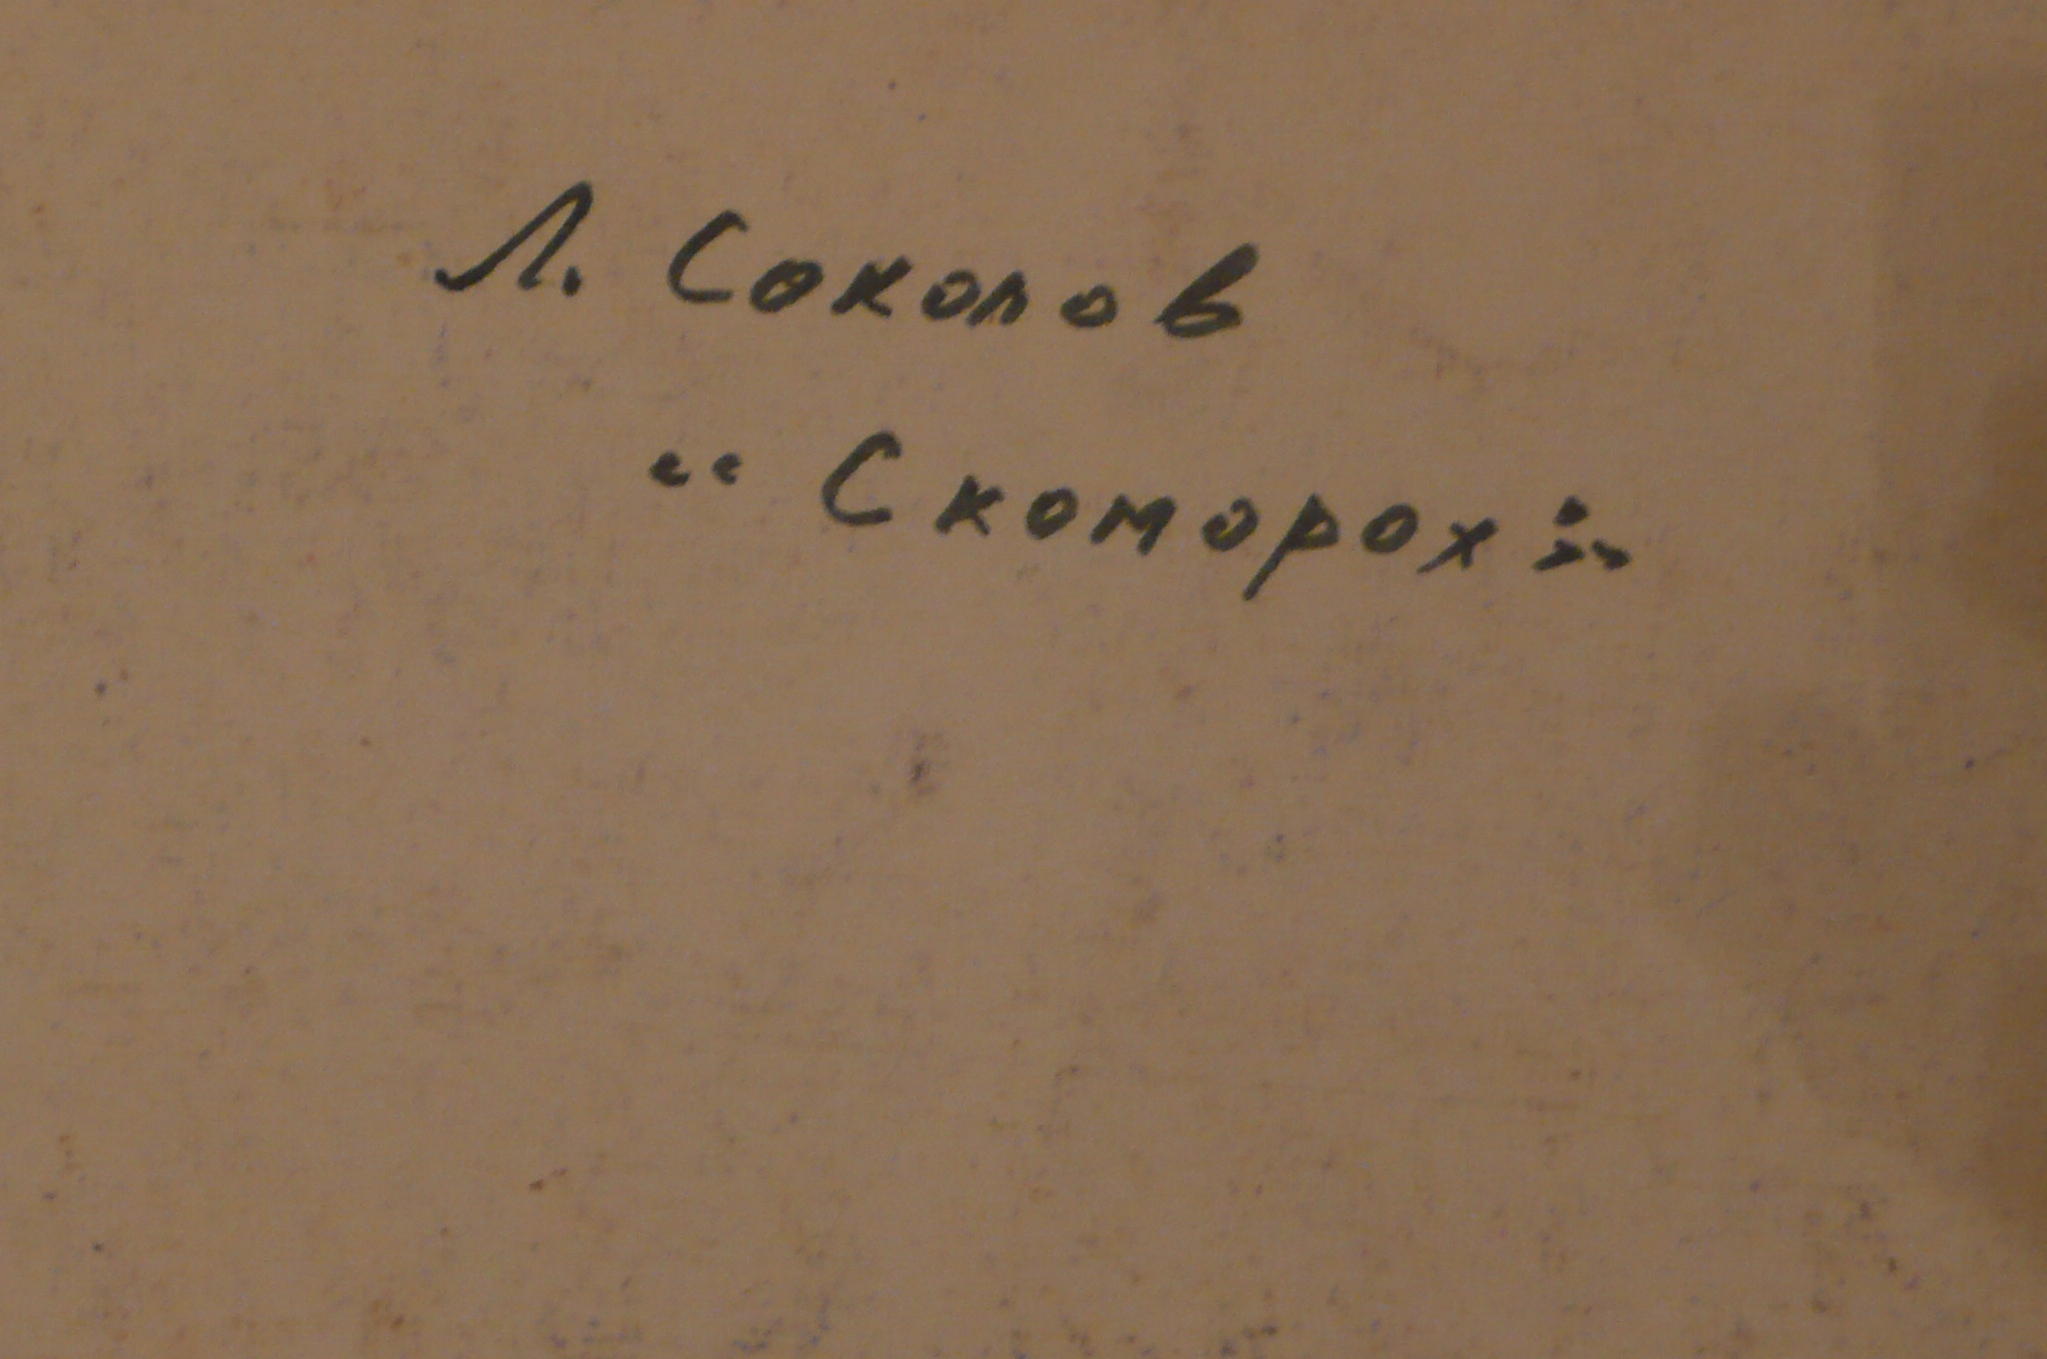 Л. Соколов
"Скоморох"